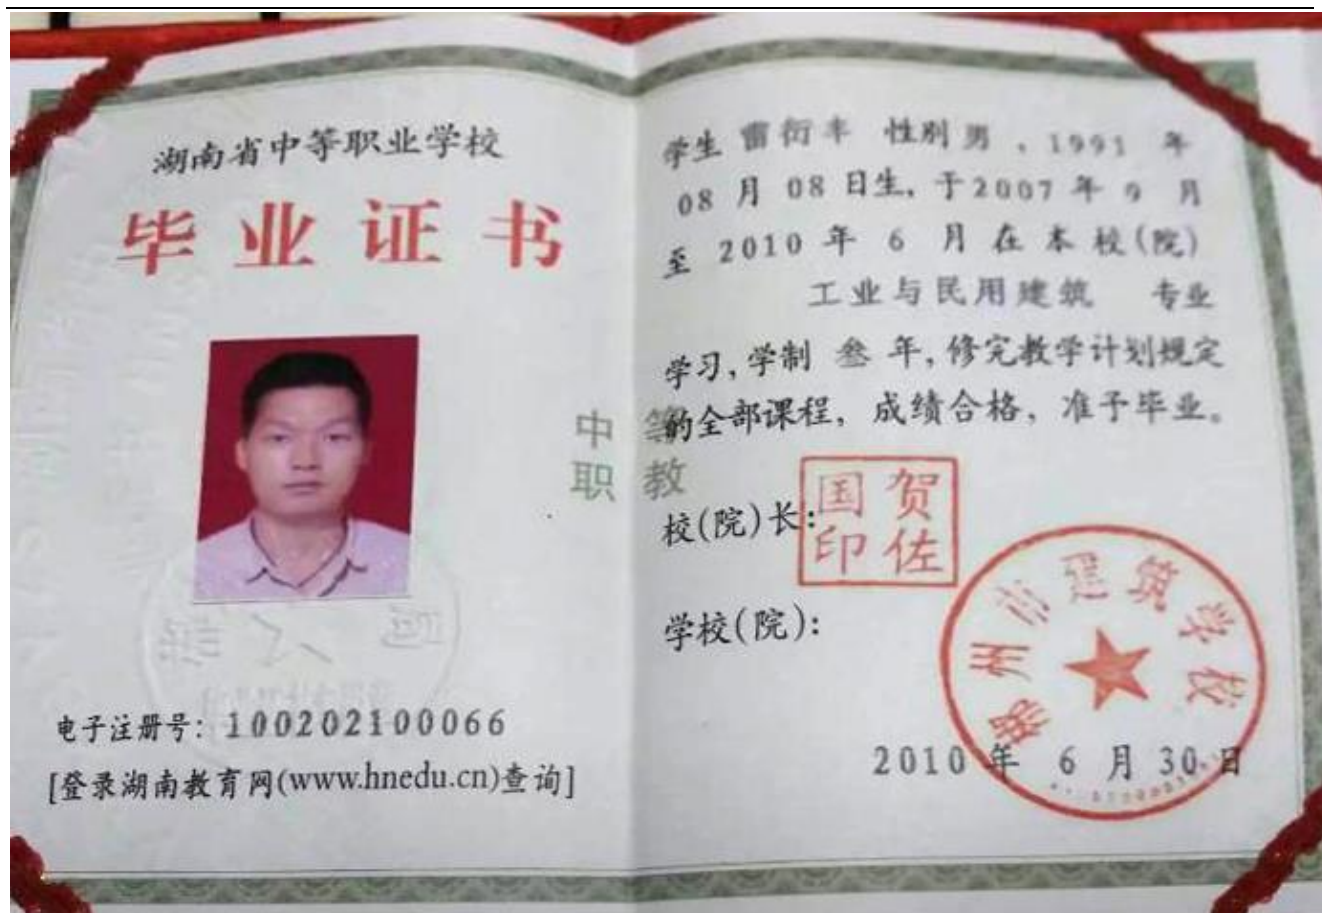 湖南省中等职业学校
毕业证书
电子注册号：100202100066
[登录湖南教育网(www.hnedu.cn)查询]
中 等
职 教
学生 雷衍丰 性别 男 ，1991 年
08 月 08 日生，于2007 年 9 月
至 2010 年 6 月 在 本 校(院)
工业与民用建筑 专业
学习，学制 叁 年，修完教学计划规定
的全部课程，成绩合格，准予毕业。
校(院)长：
贺佐
国印
学校(院)：
州市建筑学校
2010 年 6 月 30 日